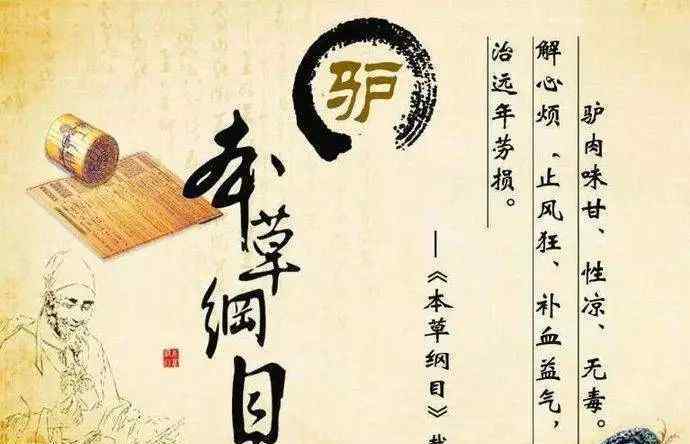 驴
本草纲目
驴肉味甘、性凉、无毒。
解心烦、止风狂、补血益气，
治远年劳损。
—《本草纲目》